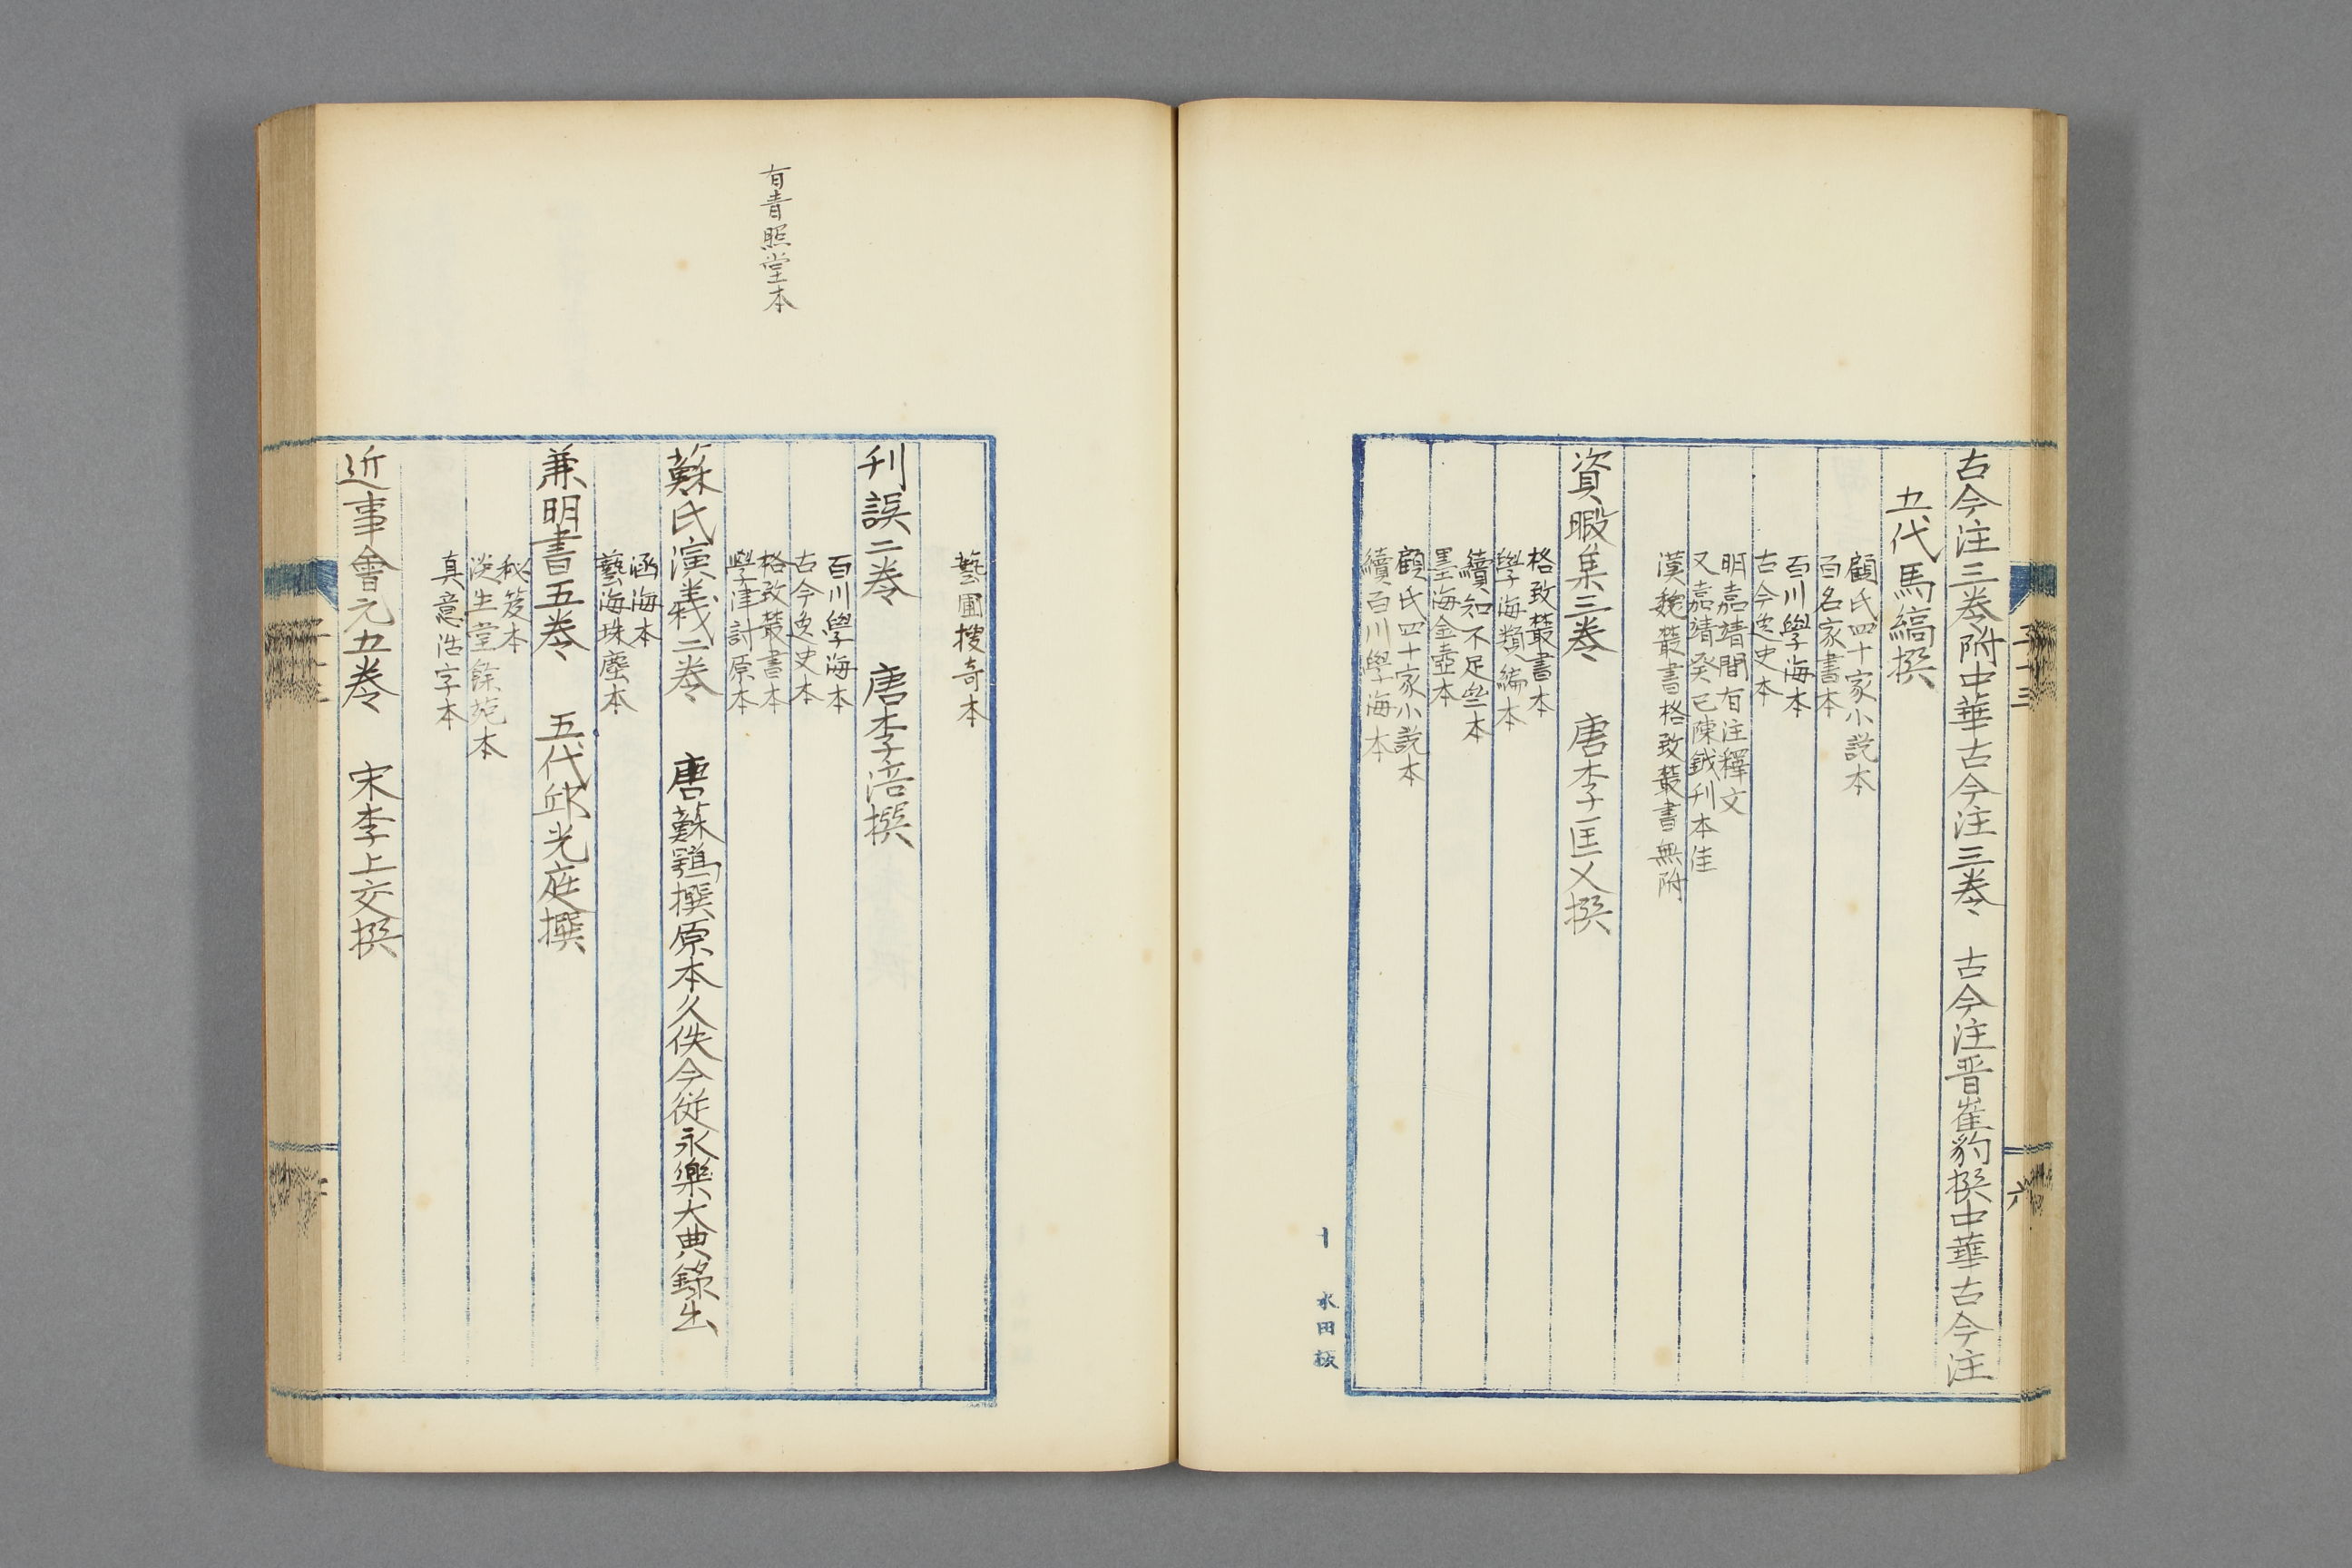 古今注三卷附中華古今注三卷　古今注晋崔豹撰中華古今注
五代馬縞撰
顧氏四十家小説本
百名家書本
百川學海本
古今逸史本
明嘉靖間有注釋文
又嘉靖癸巳陳鉞刊本佳
漢魏叢書格致叢書無附
資暇集三卷　唐李匡乂撰
格致叢書本
學海類編本
續知不足叢本
墨海金壺本
顧氏四十家小説本
續百川學海本
十　水田板
六
藝圃搜奇本
刊誤二卷　唐李涪撰
百川學海本
古今逸史本
格致叢書本
學津討原本
有青照堂本
蘇氏演義二卷　唐蘇鶚撰原本久佚今從永樂大典錄出
函海本
藝海珠塵本
兼明書五卷　五代邱光庭撰
秘笈本
淡生堂餘苑本
真意活字本
近事會元五卷　宋李上交撰